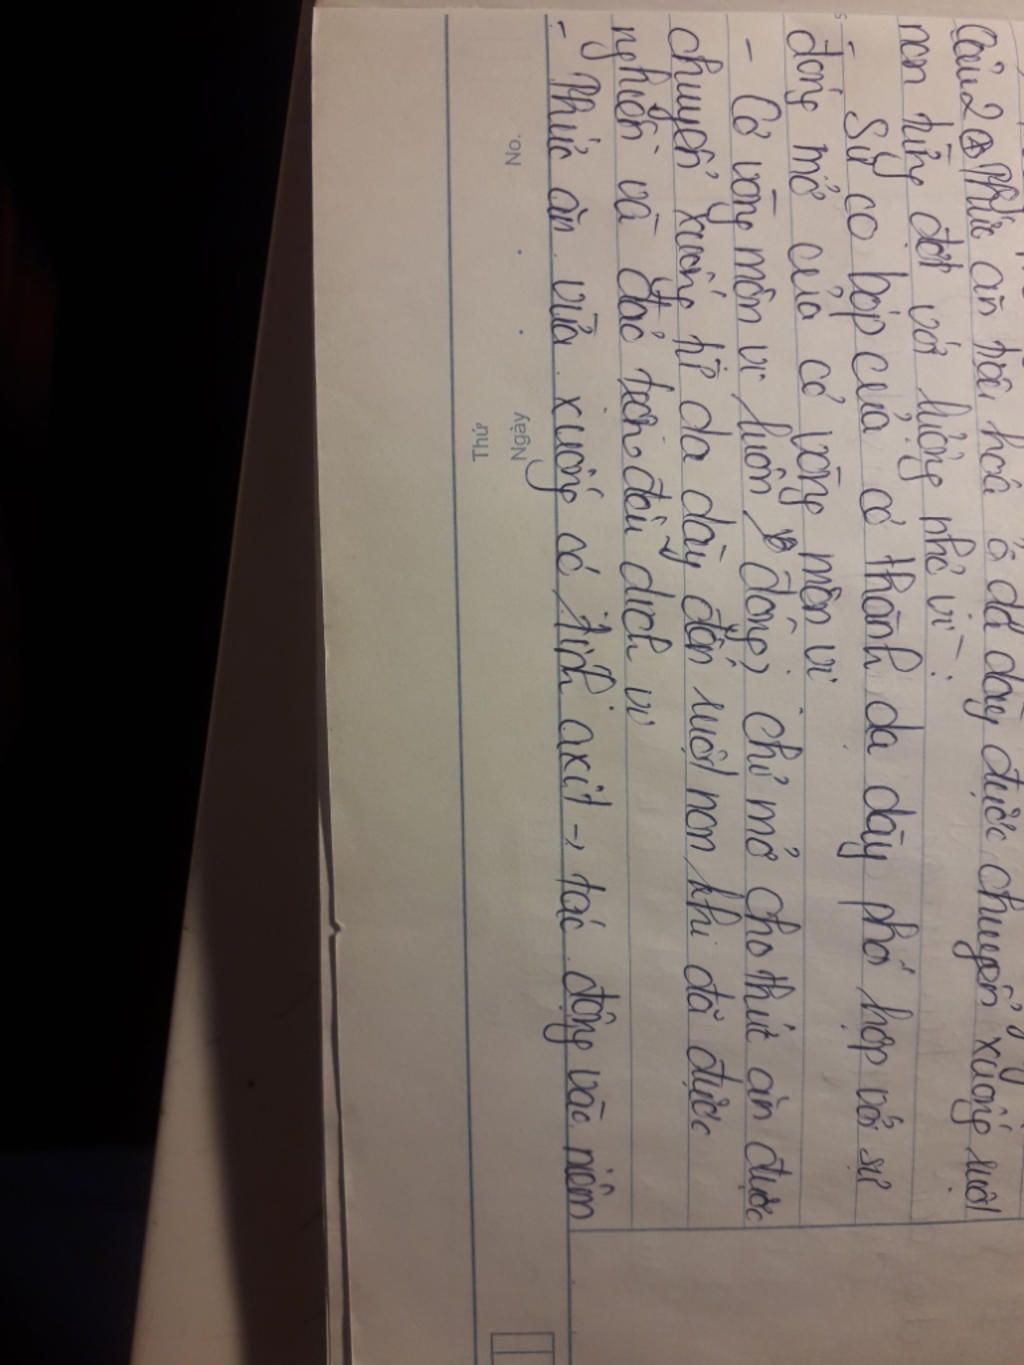 Câu 2 Thức ăn tiêu hoá ở dạ dày được chuyển xuống ruột
non từng đợt với lượng nhỏ vì:
- Sự co bóp của cơ thành dạ dày phối hợp với sự
đóng mở của cơ vòng môn vị
- Cơ vòng môn vị luôn đóng, chỉ mở cho thức ăn được
chuyển xuống từ dạ dày đến ruột non khi đã được
nghiền và đảo trộn đều dịch vị
- Thức ăn vừa xuống có tính axit → tác động vào niêm
No.
Ngày
Thứ